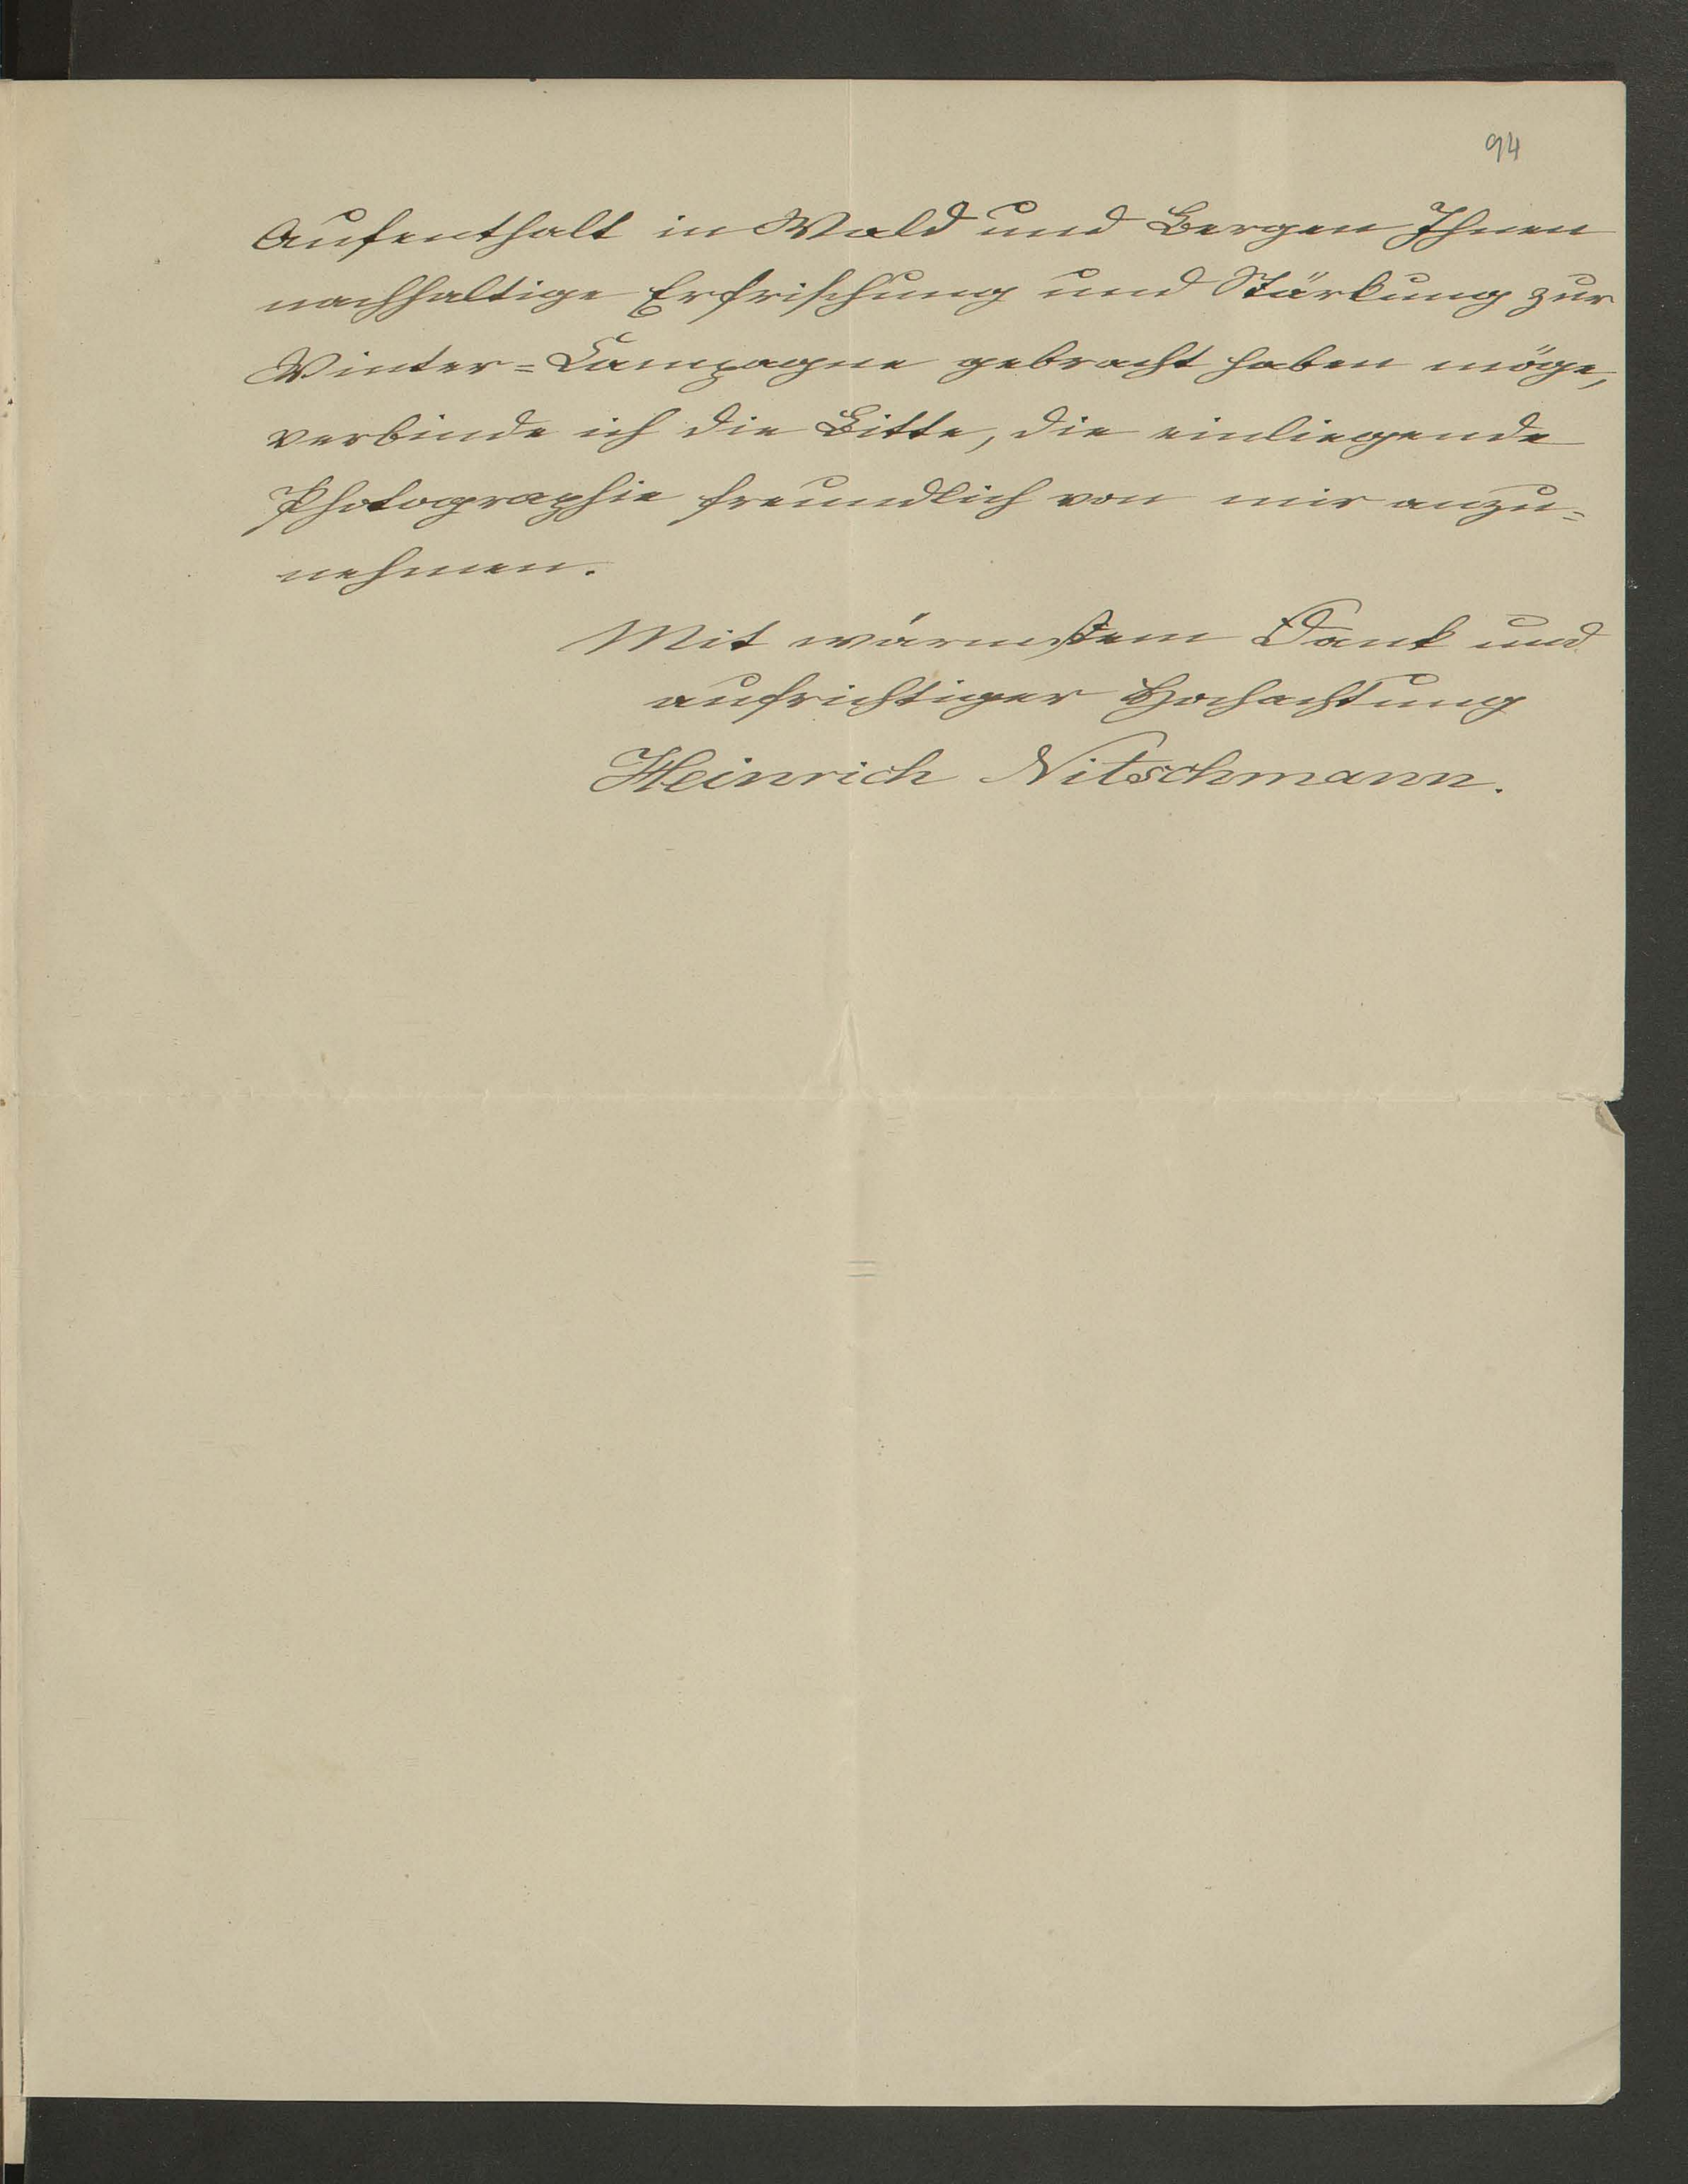 94
Aufenthalt in Wald und Bergen Ihnen
nachhaltige Erfrischung und Stärkung zur
Winter=Campagne gebracht haben möge,
verbinde ich die Bitte, die einliegende
Photographie freundlich von mir anzu=
nehmen.
Mit wärmstem Dank und
aufrichtiger Hochachtung
Heinrich Nitschmann.